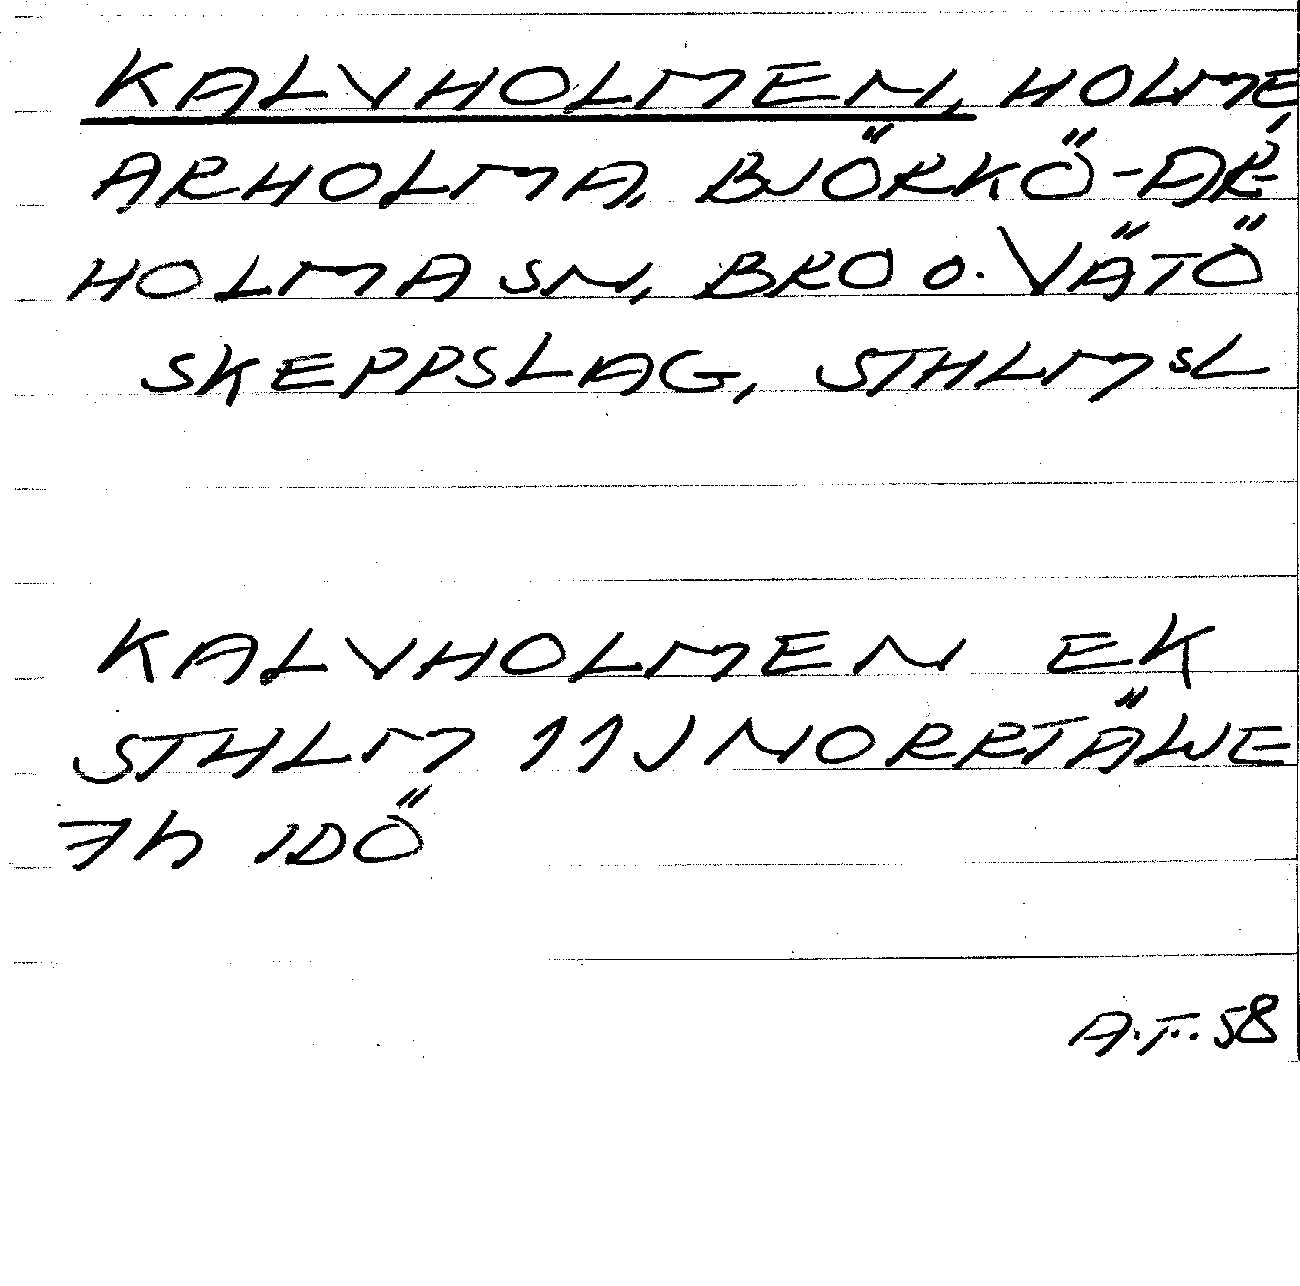 KALVHOLMEN, HOLME,
ARHOLMA, BJÖRKÖ-AR-
HOLMA SN, BRO O. VÄTÖ
SKEPPSLAG, STHLMSL
KALVHOLMEN EK
STHLM 11J NORRTÄLJE
7h IDÖ
A.F. 58